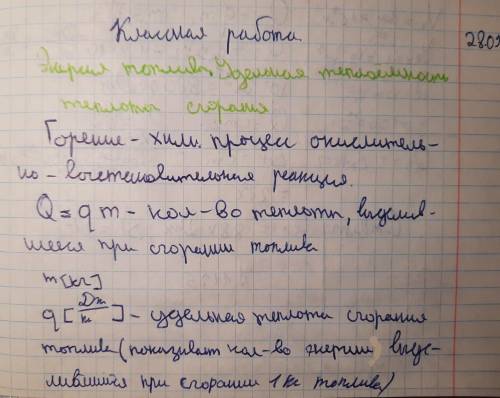 Классная работа 28.09
Энергия топлива. Удельная теплоёмкость
теплоты сгорания
Горение - хим. процесс окислитель-
но - восстановительная реакция.
Q = q m - кол-во теплоты, выделив-
шееся при сгорании топлива
m [кг]
q [Дж/кг] - удельная теплота сгорания
топлива (показывает кол-во энергии, выде-
лившийся при сгорании 1 кг топлива)